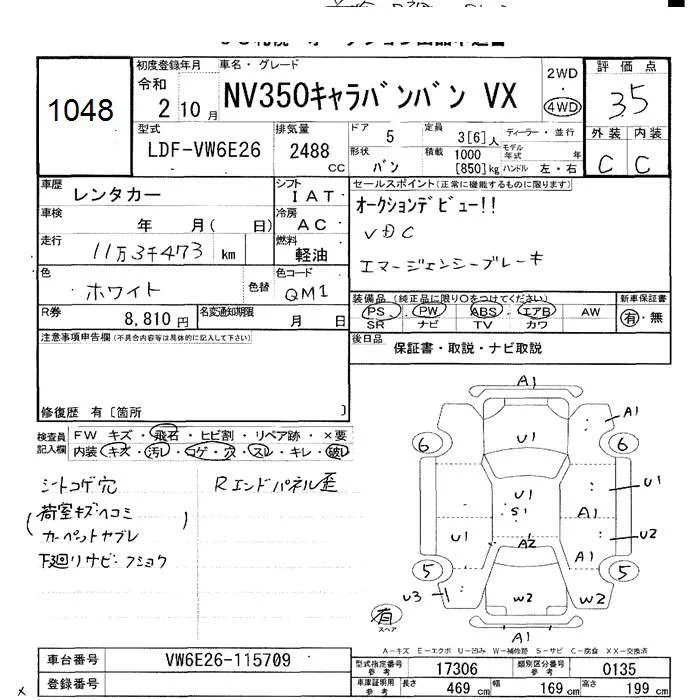 1048
初度登録年月
令和
2 10 月
車名・グレード
NV350キャラバンバン VX
2WD
4WD
評 価 点
3.5
外 装 内 装
C C
型式
LDF-VW6E26
排気量
2488 CC
ドア 5
定員 3[6]人
ディーラー・並行
形状 バン
積載 1000 [850]kg
モデル年式 年
ハンドル 左・右
車歴
レンタカー
シフト
I A T
車検
年 月( 日)
冷房
A C
走行
11万3千473 km
燃料
軽油
色
ホワイト
色替
色コード
QM1
R券
8,810 円
名変通知期限
月 日
セールスポイント(正常に機能するものに限ります)
オークションデビュー!!
VDC
エマージェンシーブレーキ
装備品(純正品に限り○をつけてください) 新車保証書
PS PW ABS エアB AW
SR ナビ TV カワ
有・無
後日品
保証書・取説・ナビ取説
注意事項申告欄(不具合内容等は具体的に記入して下さい)
修復歴 有〔箇所 〕
検査員記入欄
FW キズ・飛石・ヒビ割・リペア跡・×要
内装・キズ・汚レ・コゲ・穴・スレ・キレ・破レ
シートコゲ穴
Rエンドパネル歪
(荷室キズヘコミ
カーペットヤブレ)
下廻リサビ・フショク
A1
A1
6
6
U1
U1
S1
U1
U1
A1
U2
A2
A1
5
5
U3
1
W2
W2
有
スペア
A1
A-キズ E-エクボ U-凹み W-補修跡 S-サビ C-腐食 XX-交換済
車台番号
VW6E26-115709
登録番号
型式指定番号 参考
17306
類別区分番号 参考
0135
車庫証明用 参考
長さ 469 cm
幅 169 cm
高さ 199 cm
x